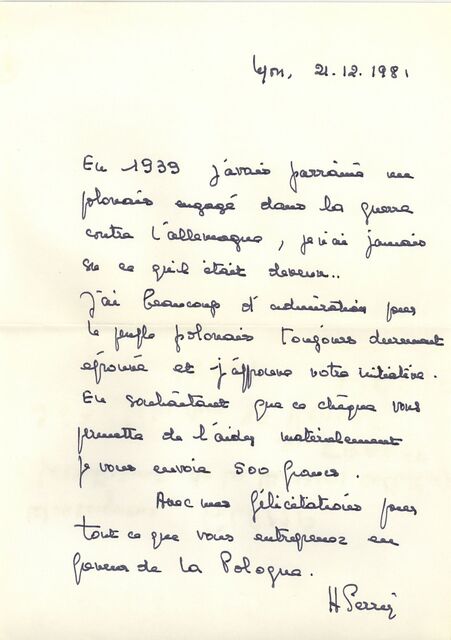 Lyon, 21.12.1981
En 1939 j'avais parrainé un
polonais engagé dans la guerre
contre l'allemagne, je n'ai jamais
su ce qu'il était devenu..
J'ai beaucoup d'admiration pour
le peuple polonais toujours durement
éprouvé et j'approuve votre initiative.
En souhaitant que ce chèque vous
permette de l'aider matérialement
je vous envoie 500 francs.
Avec mes félicitations pour
tout ce que vous entreprenez en
faveur de la Pologne.
H